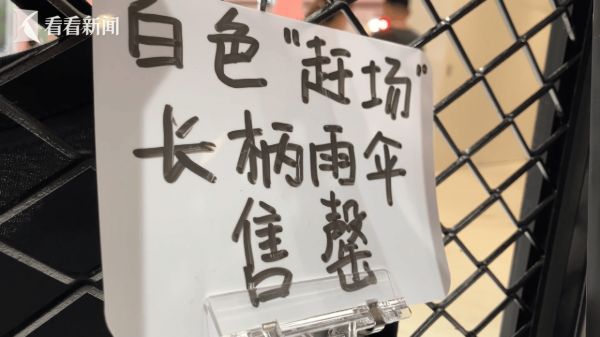 看看新闻
白色"赶场"
长柄雨伞
售罄